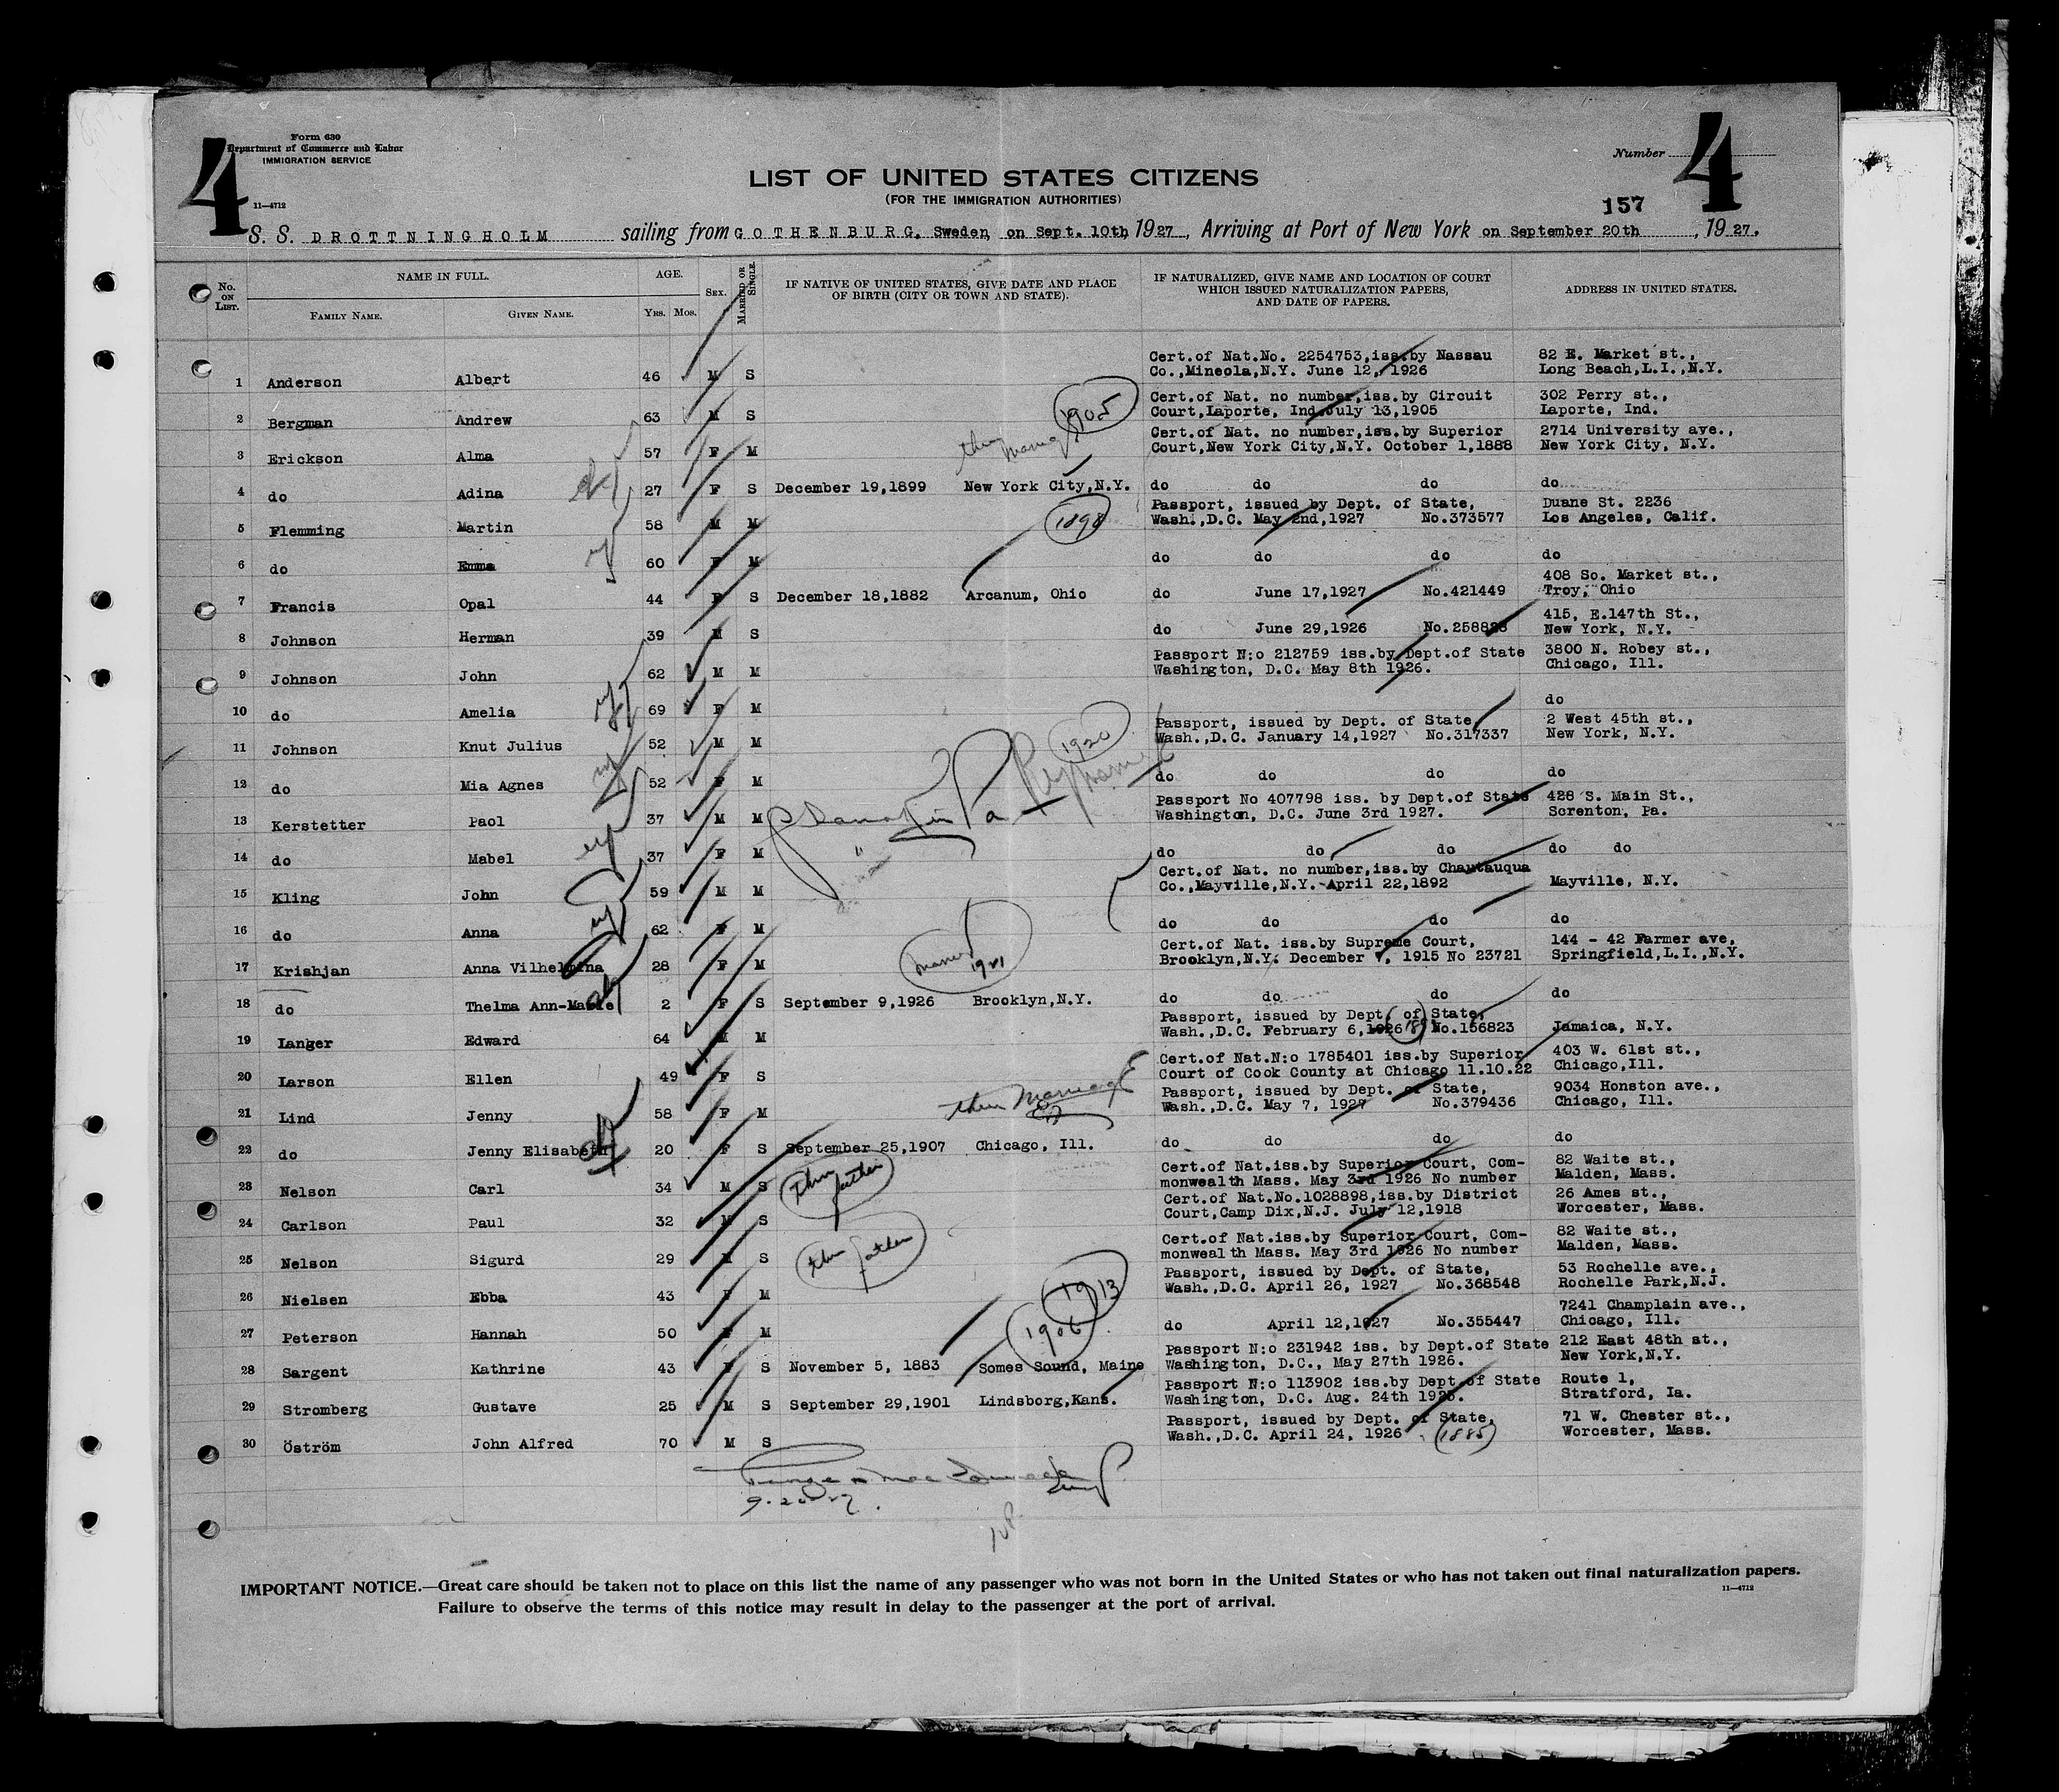 4
Form 630
Department of Commerce and Labor
IMMIGRATION SERVICE
11—4712
Number
4
LIST OF UNITED STATES CITIZENS
(FOR THE IMMIGRATION AUTHORITIES)
157
S. S. DROTTNINGHOLM sailing from GOTHENBURG, Sweden, on Sept. 10th, 1927, Arriving at Port of New York on September 20th, 1927.
No. ON LIST. NAME IN FULL. AGE. SEX. MARRIED OR SINGLE. IF NATIVE OF UNITED STATES, GIVE DATE AND PLACE OF BIRTH (CITY OR TOWN AND STATE). IF NATURALIZED, GIVE NAME AND LOCATION OF COURT WHICH ISSUED NATURALIZATION PAPERS, AND DATE OF PAPERS. ADDRESS IN UNITED STATES.
FAMILY NAME. GIVEN NAME. YRS. MOS.
Cert.of Nat.No. 2254753,iss.by Nassau 82 E. Market st.,
1 Anderson Albert 46 M S Co.,Mineola,N.Y. June 12, 1926 Long Beach,L.I.,N.Y.
Cert.of Nat. no number,iss.by Circuit 302 Perry st.,
2 Bergman Andrew 63 M S 1905 Court,Laporte, Ind.July 13,1905 Laporte, Ind.
Cert.of Nat. no number,iss.by Superior 2714 University ave.,
3 Erickson Alma 57 F M thru Court,New York City,N.Y. October 1,1888 New York City, N.Y.
4 do Adina 27 F S December 19,1899 New York City,N.Y. do do do do
Passport, issued by Dept. of State, Duane St. 2236
5 Flemming Martin 58 M M 1898 Wash.,D.C. May 2nd,1927 No.373577 Los Angeles, Calif.
6 do Emma 60 F M do do do do
408 So. Market st.,
7 Francis Opal 44 F S December 18,1882 Arcanum, Ohio do June 17,1927 No.421449 Troy, Ohio
415, E.147th St.,
8 Johnson Herman 39 M S do June 29,1926 No.258828 New York, N.Y.
Passport N:o 212759 iss.by Dept.of State 3800 N. Robey st.,
9 Johnson John 62 M M Washington, D.C. May 8th 1926. Chicago, Ill.
10 do Amelia 69 F M do
Passport, issued by Dept. of State, 2 West 45th st.,
11 Johnson Knut Julius 52 M M 1920 Wash.,D.C. January 14,1927 No.317337 New York, N.Y.
12 do Mia Agnes 52 F M do do do do
Passport No 407798 iss. by Dept.of State 428 S. Main St.,
13 Kerstetter Paol 37 M M Shamokin Pa Washington, D.C. June 3rd 1927. Screnton, Pa.
14 do Mabel 37 F M " do do do do do
Cert.of Nat. no number,iss.by Chautauqua
15 Kling John 59 M M Co.,Mayville,N.Y. April 22,1892 Mayville, N.Y.
16 do Anna 62 F M do do do do
Cert.of Nat. iss.by Supreme Court, 144 - 42 Farmer ave,
17 Krishjan Anna Vilhelmina 28 F M 1921 Brooklyn,N.Y. December 1915 No 23721 Springfield,L.I.,N.Y.
18 do Thelma Ann-Marie 2 F S September 9,1926 Brooklyn,N.Y. do do do do
Passport, issued by Dept. of State,
19 Langer Edward 64 M M Wash.,D.C. February 6,1926 No.156823 Jamaica, N.Y.
Cert.of Nat.N:o 1785401 iss.by Superior 403 W. 61st st.,
20 Larson Ellen 49 F S Court of Cook County at Chicago 11.10.22 Chicago,Ill.
Passport, issued by Dept. of State, 9034 Honston ave.,
21 Lind Jenny 58 F M thru Marriage Wash.,D.C. May 7, 1927 No.379436 Chicago, Ill.
22 do Jenny Elisabeth 20 F S September 25,1907 Chicago, Ill. do do do do
Cert.of Nat.iss.by Superior Court, Com- 82 Waite st.,
23 Nelson Carl 34 M S thru father monwealth Mass. May 3rd 1926 No number Malden, Mass.
Cert.of Nat.No.1028898,iss.by District 26 Ames st.,
24 Carlson Paul 32 M S Court,Camp Dix,N.J. July 12,1918 Worcester, Mass.
Cert.of Nat.iss.by Superior Court, Com- 82 Waite st.,
25 Nelson Sigurd 29 M S thru father monwealth Mass. May 3rd 1926 No number Malden, Mass.
Passport, issued by Dept. of State, 53 Rochelle ave.,
26 Nielsen Ebba 43 F M 1913 Wash.,D.C. April 26, 1927 No.368548 Rochelle Park,N.J.
7241 Champlain ave.,
27 Peterson Hannah 50 F M 1906 do April 12,1927 No.355447 Chicago, Ill.
Passport N:o 231942 iss. by Dept.of State 212 East 48th st.,
28 Sargent Kathrine 43 F S November 5, 1883 Somes Sound, Maine Washington, D.C., May 27th 1926. New York,N.Y.
Passport N:o 113902 iss.by Dept.of State Route 1,
29 Stromberg Gustave 25 M S September 29,1901 Lindsborg,Kans. Washington, D.C. Aug. 24th 1925. Stratford, Ia.
Passport, issued by Dept. of State, 71 W. Chester st.,
30 Öström John Alfred 70 M S Wash.,D.C. April 24, 1926 (1885) Worcester, Mass.
IMPORTANT NOTICE.—Great care should be taken not to place on this list the name of any passenger who was not born in the United States or who has not taken out final naturalization papers.
11—4712
Failure to observe the terms of this notice may result in delay to the passenger at the port of arrival.